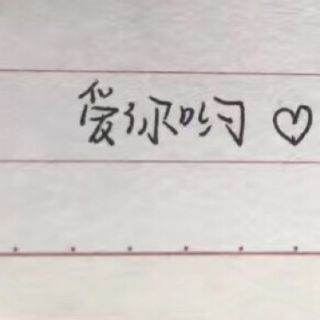 爱你哟♡